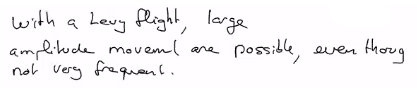 With a Levy flight, large
amplitude movement are possible, even thoug
not very frequent.